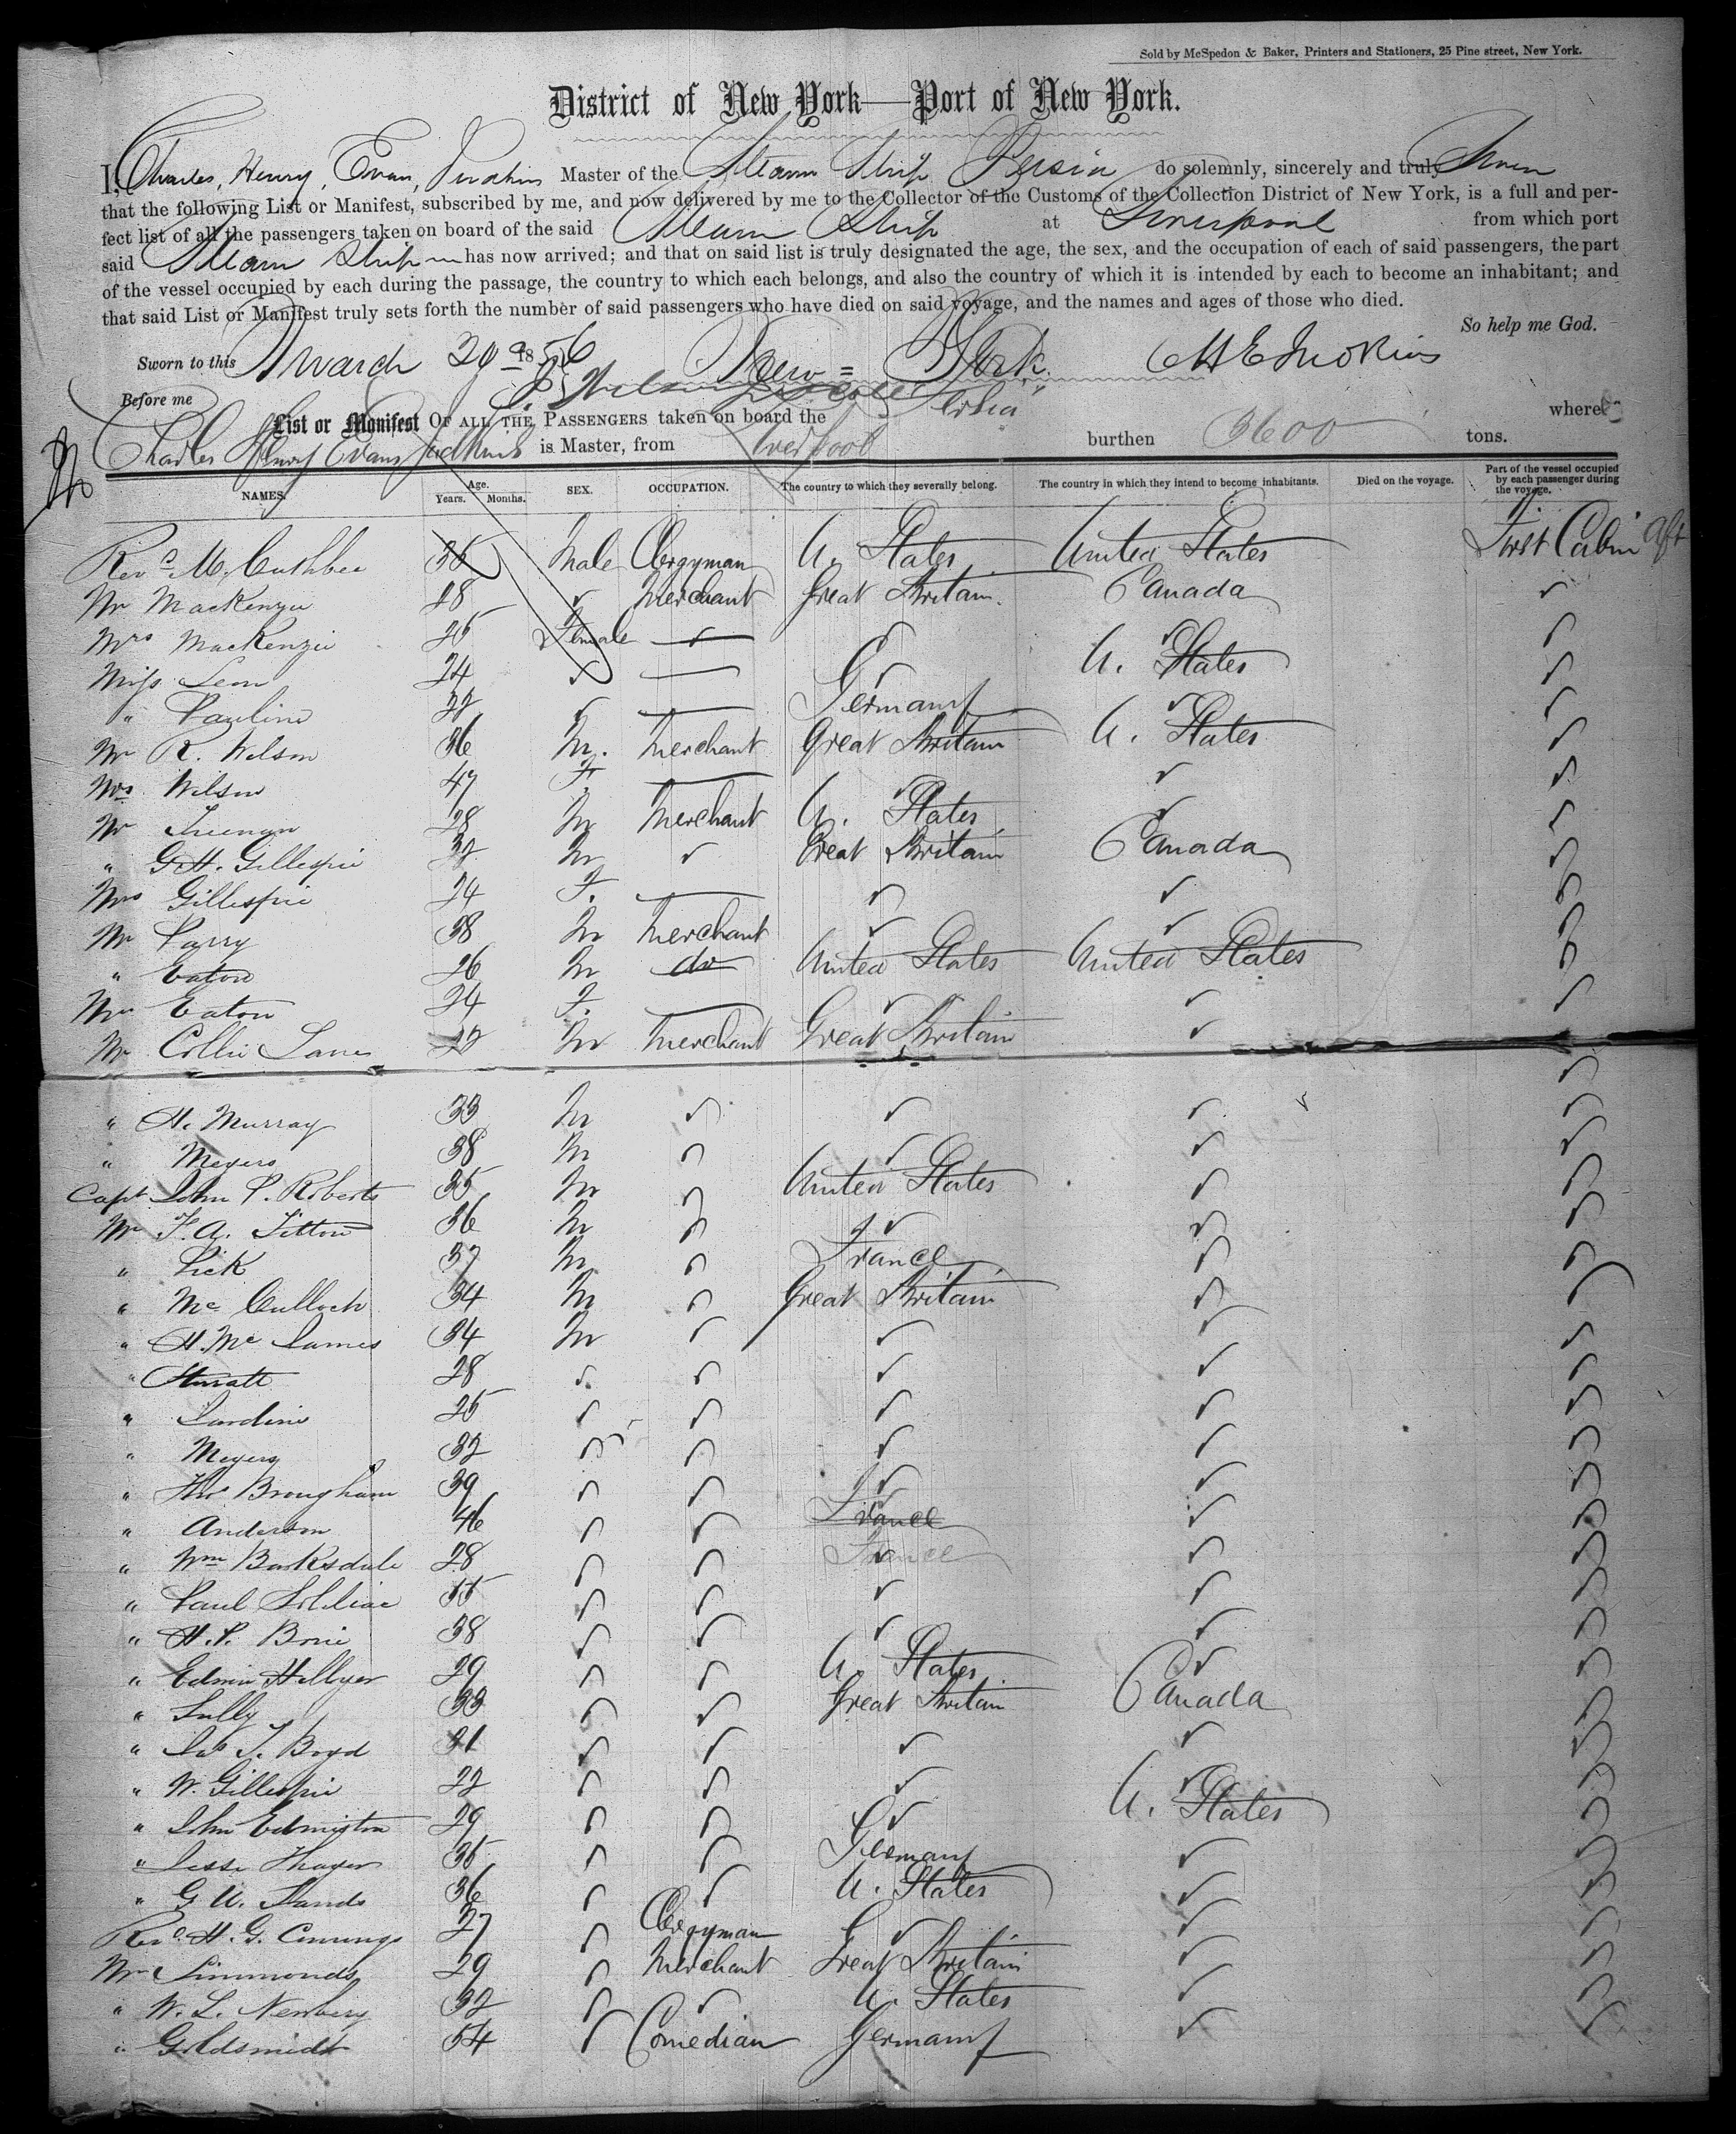 Sold by McSpedon & Baker, Printers and Stationers, 25 Pine street, New York.
District of New York—Port of New York.
I, Charles, Henry, Evan, Judkins Master of the Steam Ship Persia do solemnly, sincerely and truly Swear
that the following List or Manifest, subscribed by me, and now delivered by me to the Collector of the Customs of the Collection District of New York, is a full and per-
fect list of all the passengers taken on board of the said Steam Ship at Liverpool from which port
said Steam Ship has now arrived; and that on said list is truly designated the age, the sex, and the occupation of each of said passengers, the part
of the vessel occupied by each during the passage, the country to which each belongs, and also the country of which it is intended by each to become an inhabitant; and
that said List or Manifest truly sets forth the number of said passengers who have died on said voyage, and the names and ages of those who died.
So help me God.
Sworn to this March 29 1856 New = York. CHE Judkins
Before me
List or Manifest OF ALL THE PASSENGERS taken on board the Persia whereof
Charles Henry Evans Judkins is Master, from Liverpool burthen 3600 tons.
NAMES. Age. Years. Months. SEX. OCCUPATION. The country to which they severally belong. The country in which they intend to become inhabitants. Died on the voyage. Part of the vessel occupied by each passenger during the voyage.
Revd McCuthbee 36 Male Clergyman U. States United States First Cabin Aft
Mr MacKenzie 28 ✓ Merchant Great Britain. Canada ✓
Mrs MacKenzie 25 Female — ✓ ✓ ✓
Miss Leon 24 ✓ — ✓ U. States ✓
" Pauline 22 ✓ — Germany ✓ ✓
Mr R. Wilson 36 M. Merchant Great Britain U. States ✓
Mrs Wilson 47 F. — ✓ ✓ ✓
Mr 28 M Merchant U. States ✓ ✓
" G.H. Gillespie 32 M ✓ Great Britain Canada ✓
Mrs Gillespie 24 F. — ✓ ✓ ✓
Mr Parry 38 M Merchant ✓ ✓ ✓
" Eaton 26 M do United States United States ✓
Mrs Eaton 24 F. — ✓ ✓ ✓
Mr Collie 22 M Merchant Great Britain ✓ ✓
" H. Murray 33 M ✓ ✓ ✓ ✓
" Meyers 38 M ✓ ✓ ✓ ✓
Capt John P. Roberts 35 M ✓ United States ✓ ✓
Mr F.A. 36 M ✓ ✓ ✓ ✓
" Pick 37 M ✓ France ✓ ✓
" Mc Culloch 34 M ✓ Great Britain ✓ ✓
" H. Mc James 34 M ✓ ✓ ✓ ✓
" 28 ✓ ✓ ✓ ✓ ✓
" Jardine 25 ✓ ✓ ✓ ✓ ✓
" Meyers 32 ✓ ✓ ✓ ✓ ✓
" Thos Brougham 39 ✓ ✓ ✓ ✓ ✓
" Anderson 46 ✓ ✓ France ✓ ✓
" Wm Barksdale 28 ✓ ✓ France ✓ ✓
" Paul ✓ ✓ ✓ ✓ ✓
" H.P. Borie 38 ✓ ✓ ✓ ✓ ✓
" Edwin Hillyer 29 ✓ ✓ U. States ✓ ✓
" Sully 33 ✓ ✓ Great Britain Canada ✓
" Jas T. Boyd 31 ✓ ✓ ✓ ✓ ✓
" W. Gillespie 22 ✓ ✓ ✓ ✓ ✓
" John Edmiston 29 ✓ ✓ ✓ U. States ✓
" Jesse Thayer 35 ✓ ✓ Germany ✓ ✓
" G.W. Sands 36 ✓ ✓ U. States ✓ ✓
Revd H.G. 27 ✓ Clergyman ✓ ✓ ✓
Mr Simmonds 29 ✓ Merchant Great Britain ✓ ✓
" W.L. Newberry 32 ✓ ✓ U. States ✓ ✓
" Goldsmidt 54 ✓ Comedian Germany ✓ ✓